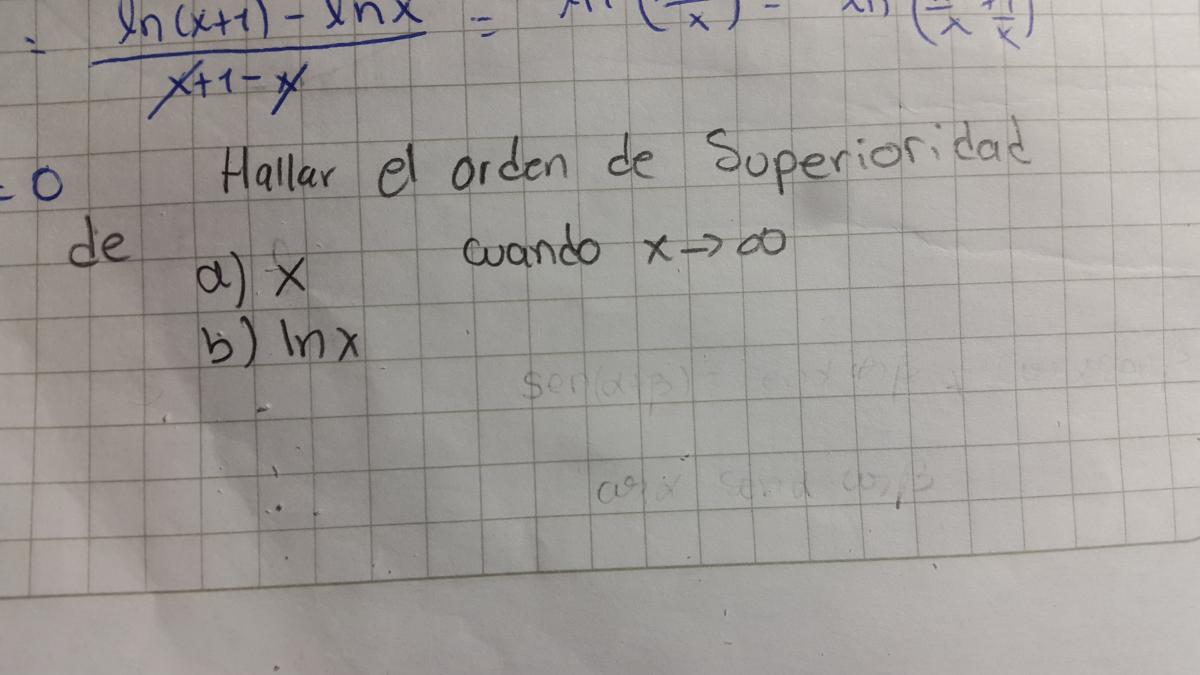 = ln(x+1) - ln x / x+1-x =
= 0 Hallar el orden de Superioridad
de cuando x → ∞
a) x
b) ln x
sen(α+β)